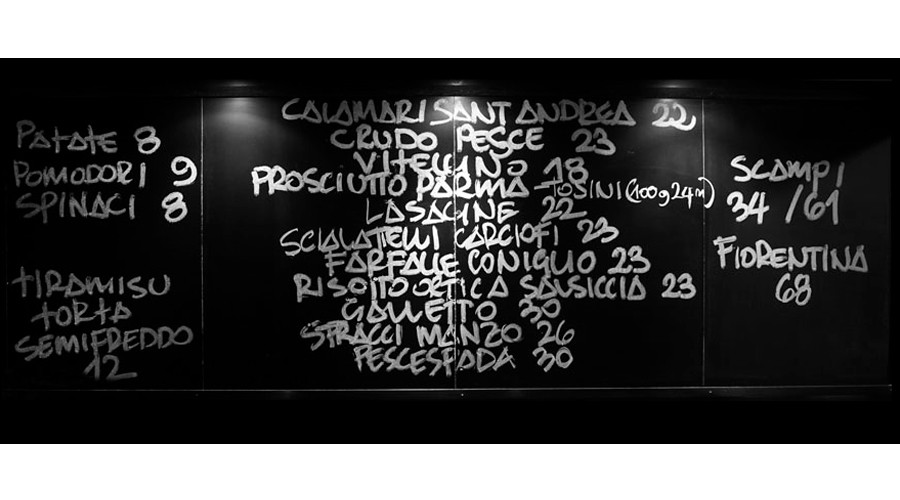 PATATE 8
POMODORI 9
SPINACI 8
TIRAMISU
TORTA
SEMIFREDDO
12
CALAMARI SANT ANDREA 22
CRUDO PESCE 23
VITELLINO 18
PROSCIUTTO PARMA TOSINI (100g 24m)
LASAGNE 22
SCIALATELLI CARCIOFI 23
FARFALLE CONIGLIO 23
RISOTTO ORTICA SALSICCIA 23
GALLETTO 30
STRACCI MANZO 26
PESCESPADA 30
SCAMPI
34 / 61
FIORENTINA
68